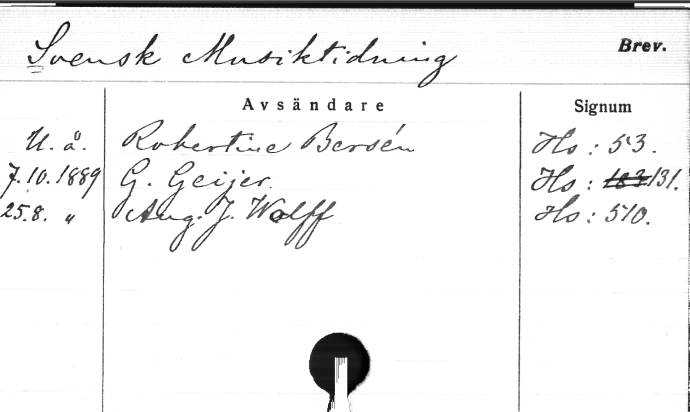 Svensk Musiktidning Brev.
Avsändare Signum
U. å. Robertine Bersén Hs : 53.
7.10.1889 G. Geijer. Hs : 183 131.
25.8. " Aug. J. Wolff Hs : 510.